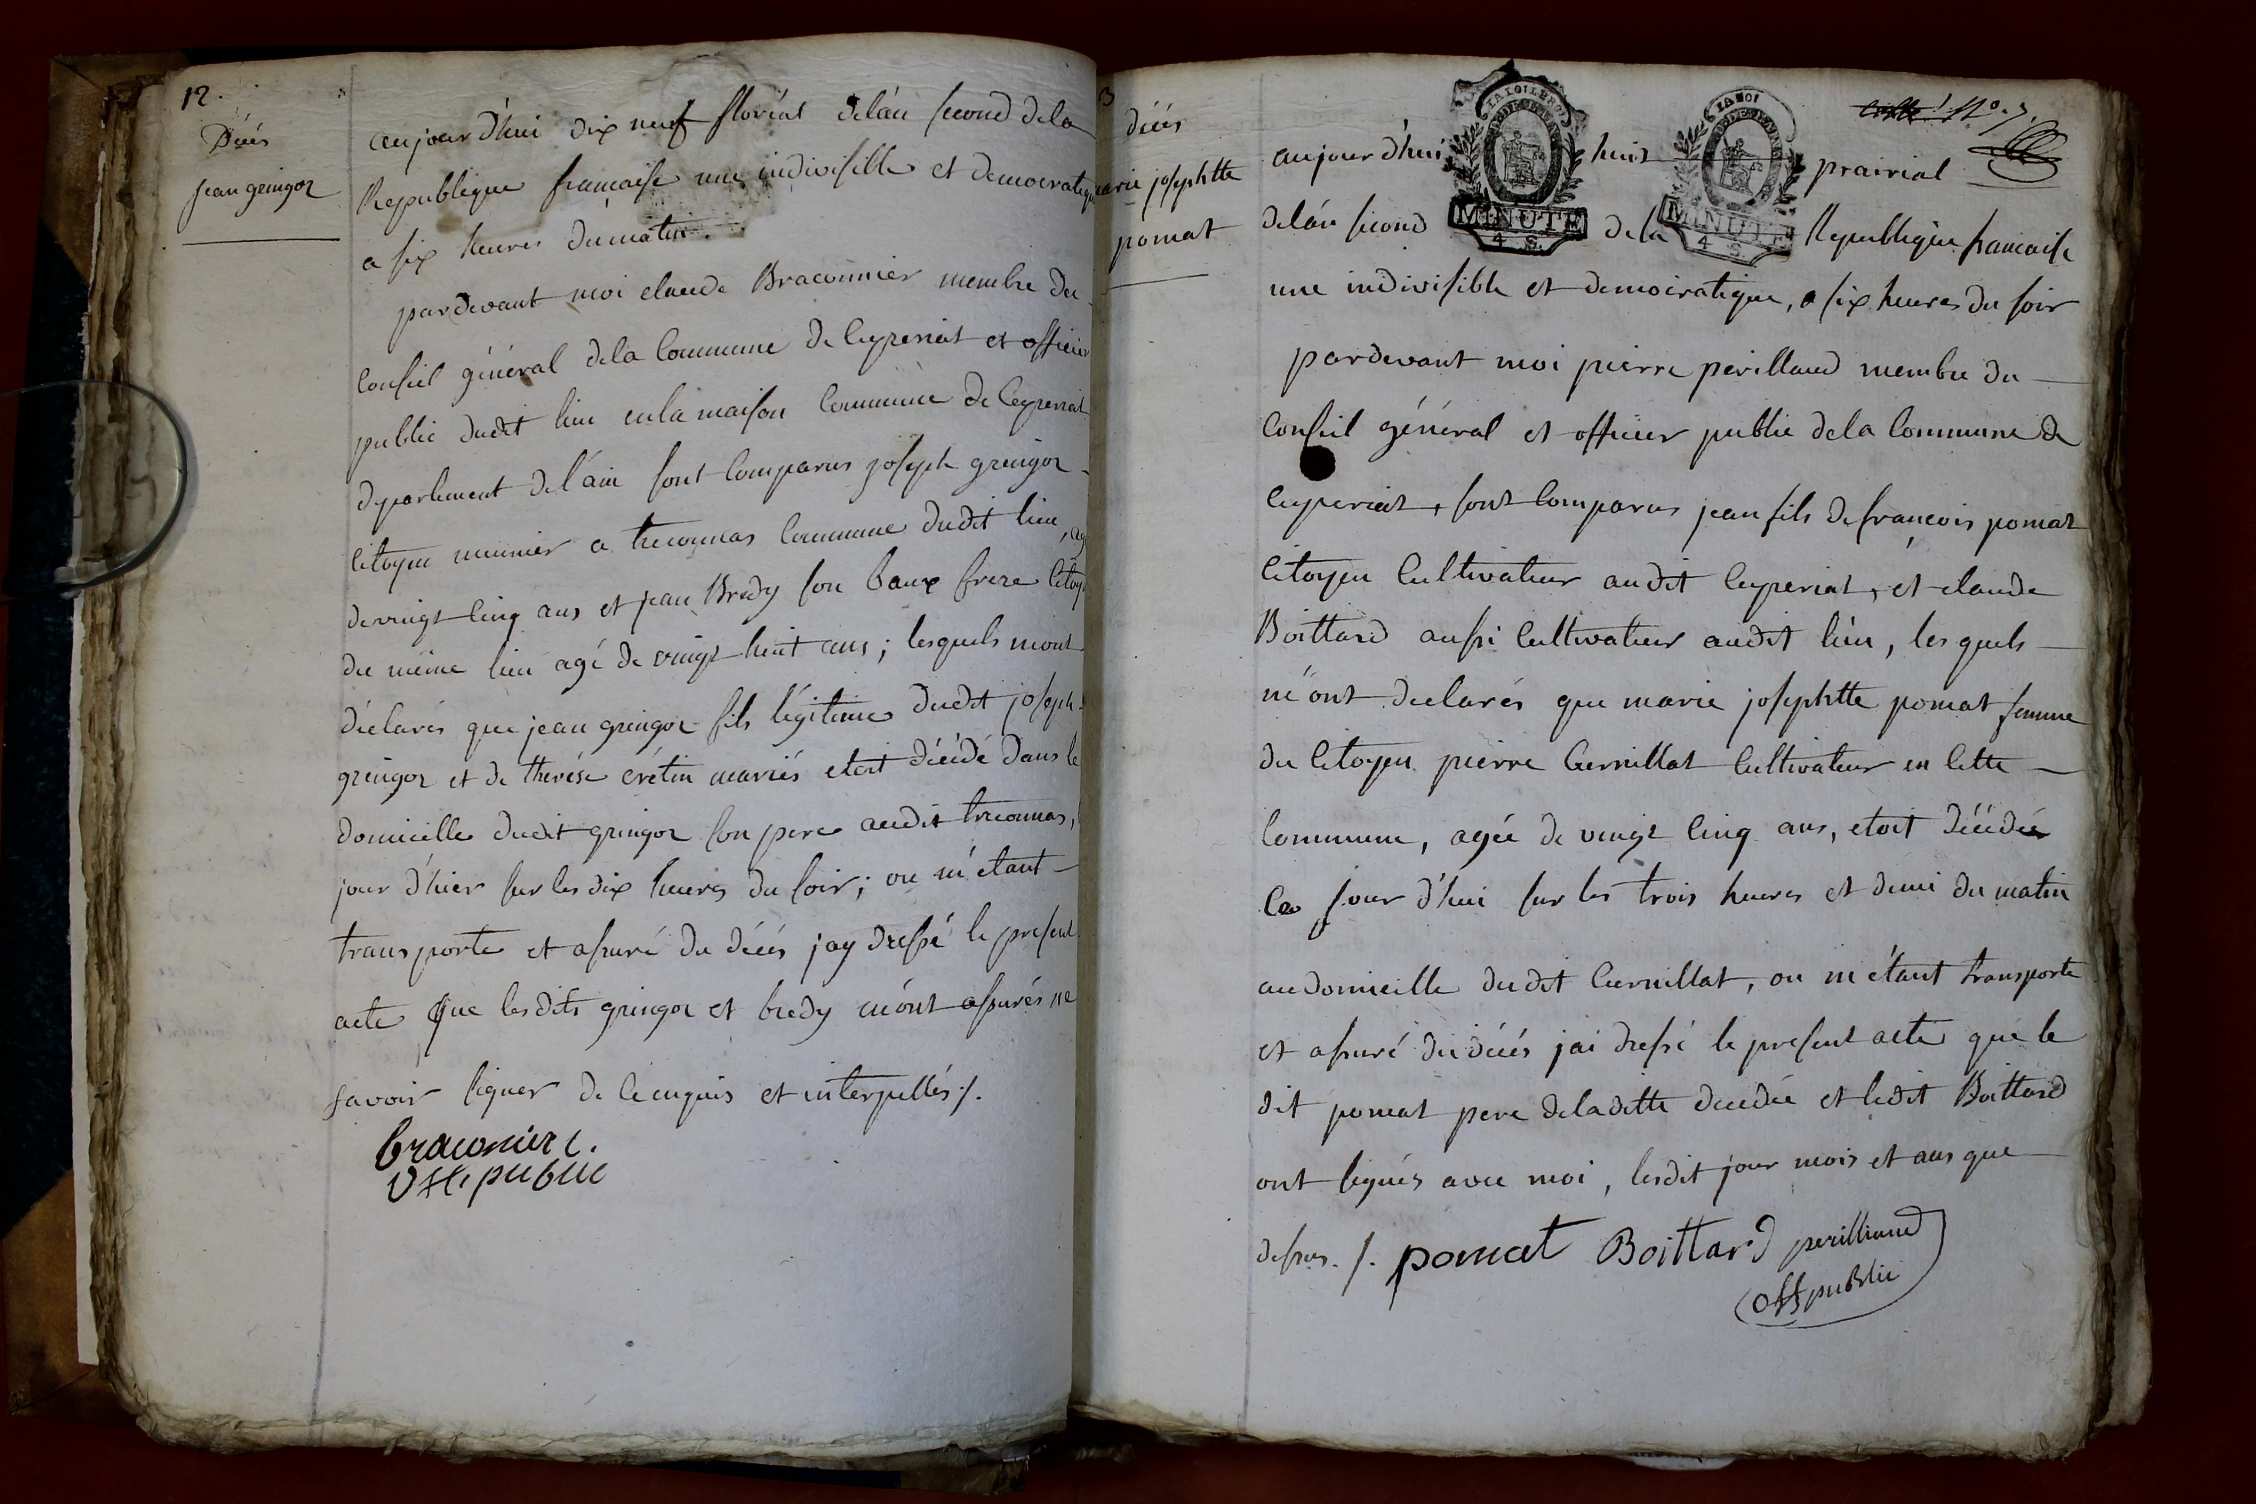 12.
Décés
jean gringoz
aujourd'hui dix neuf floréal delán second dela
Republique francaise une indivisille et democratiq
a six heures du matin.
pardevant moi claude Braconnier membre du
Conseil général dela Commune de Ceyzeriat et officier
public dudit lieu enla maison Commune de Ceyzeriat
departement del'ain sont Comparus joseph gringoz
Citoyen meunier a treconnas Commune dudit lieu, ag
devingt Cinq ans et jean Bredy son baux frere Citoy
du même lieu agé de vingt huit ans; lesquels mont
déclarés que jean gringoz fils légitime dudit joseph
gringoz et de therése crétin mariés etoit décédé dans le
domicille dudit gringoz son pere audit treconnas,
jour d'hier sur les dix heures du soir; ou m'étant
transporte et assuré du décés jay dressé le present
acte que lesdits gringoz et bredy m'ont assurés ne
savoir signer de ce enquis et interpellés ./.
braconier c.
Off. public
3
décés
marie josephtte
pomat
LA LOI LE ROI
LA LOI
MINUTE
4 S.
MINUTE
4 S
Nº. 7.
aujourd'hui huit prairial
delán second dela Republique francaise
une indivisible et democratique, a six heures du soir
pardevant moi pierre perilland membre du
Conseil général et officier public dela Commune de
Ceyzeriat, sont Comparus jean fils de françois pomat
Citoyen Cultivateur audit Ceyzeriat, et claude
Boittard aussi Cultivateur audit lieu, les quels
m'ont declarés que marie josephtte pomat femme
du Citoyen pierre Curnillat Cultivateur en Cette
Commune, agée de vingt Cinq ans, etoit décédée
Ce jour d'hui sur les trois heures et demi du matin
au domicille dudit Curnillat, ou m'étant transporte
et assuré du décés jai dressé le present acte que le
dit pomat pere deladitte decedée et ledit Boittard
ont signés avec moi, lesdit jour mois et ans que
dessus. /. pomat Boittard perilliand
off public